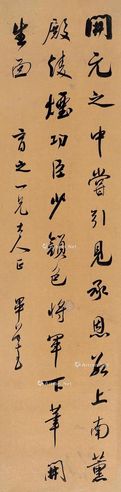 開元之中嘗引見承恩數上南薰
殿凌煙功臣少顏色將軍下筆開
生面 育之一兄大人正 畢